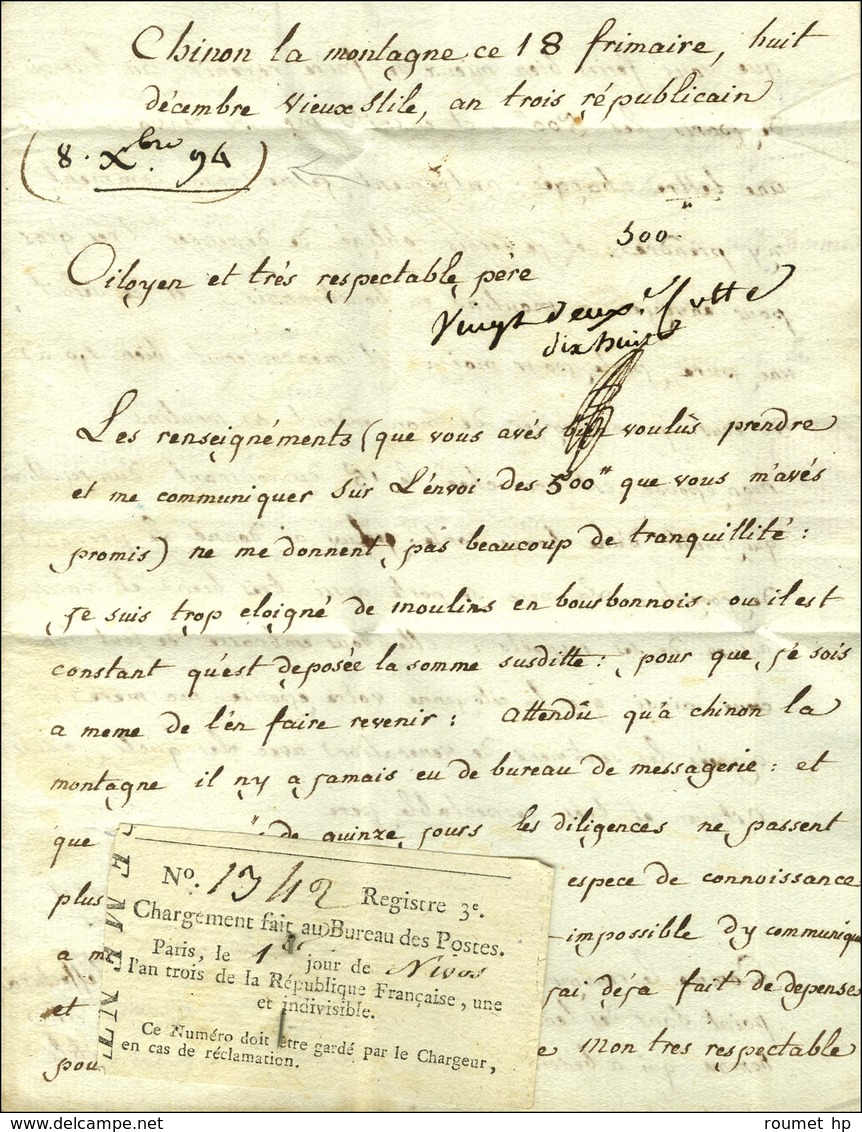 Chinon la montagne ce 18 frimaire, huit
décembre Vieux Stile, an trois républicain
(8. Xbre. 94)
500"
Citoyen et très respectable père
Vingt deux
dix huit
Les renseignéments (que vous avés bien voulûs prendre
et me communiquer sur L'énvoi des 500" que vous m'avés
promis) ne me donnent pas beaucoup de tranquillité :
je suis trop eloigné de moulins en bourbonnois ou il est
constant qu'est deposée la somme susditte : pour que je sois
a meme de l'én faire revenir : attendû qu'a chinon la
montagne il ny a jamais eu de bureau de messagerie : et
que de quinze jours les diligences ne passent
plus espece de connoissance
a m impossible dy communiqu
et jai déja fait de depense
pou e mon tres respectable
EMENT
No. 1342 Registre 3e.
Chargement fait au Bureau des Postes.
Paris, le 1er jour de Nivos
l'an trois de la République Française, une
et indivisible.
Ce Numéro doit être gardé par le Chargeur,
en cas de réclamation.
roumet hp